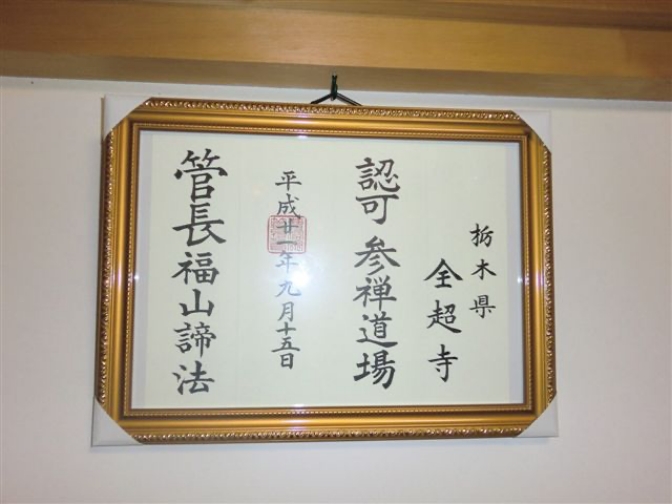 栃木県
全超寺
認可参禅道場
平成廿一年九月十五日
管長福山諦法